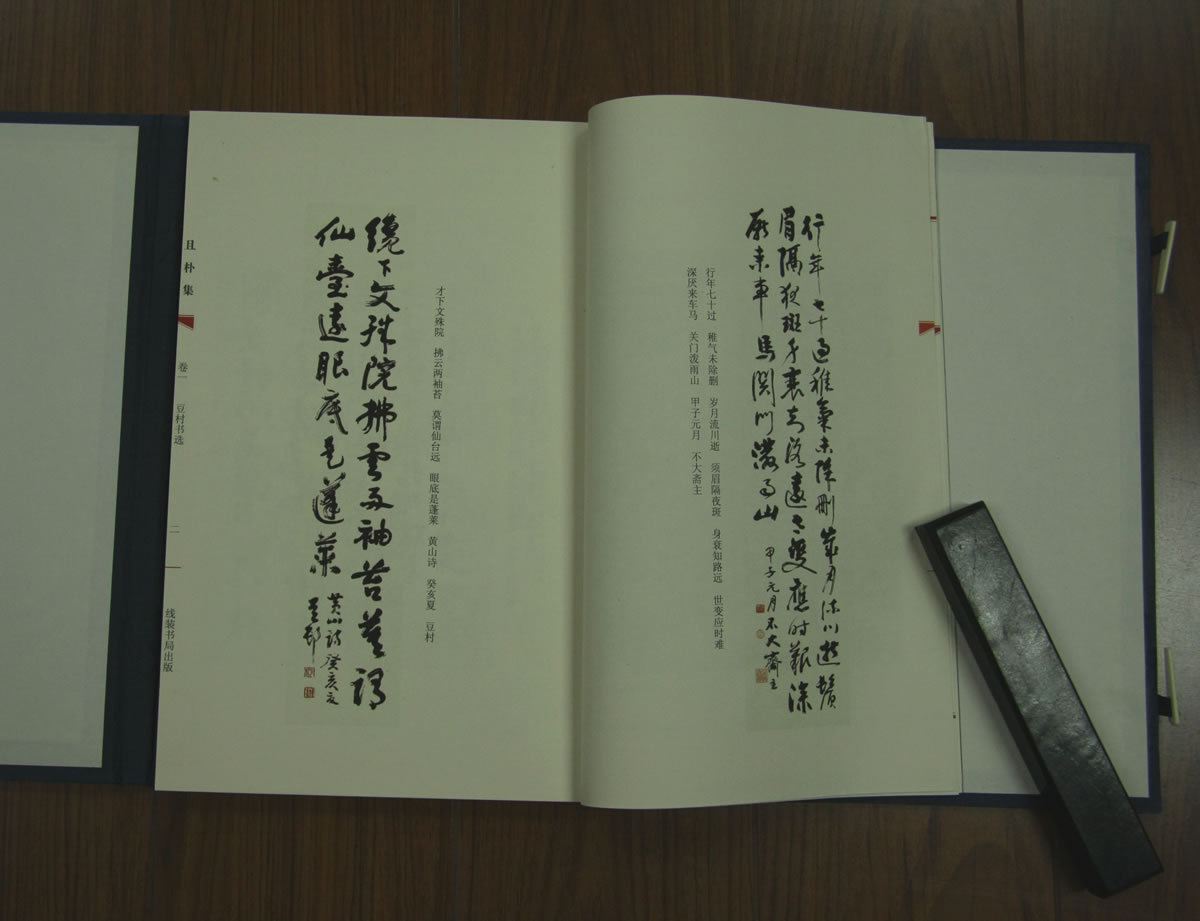 行年七十過稚氣未除刪歲月流川逝鬚
眉隔夜斑身衰知路遠世變應時艱深
厭來車馬関門潑雨山 甲子元月不大齋主
行年七十过 稚气未除删 岁月流川逝 须眉隔夜斑 身衰知路远 世变应时难
深厌来车马 关门泼雨山 甲子元月 不大斋主
才下文殊院 拂云两袖苔 莫谓仙台远 眼底是蓬莱 黄山诗 癸亥夏 豆村
纔下文殊院拂雲兩袖苔莫謂
仙臺遠眼底是蓬萊 黄山詩癸亥夏
豆邨
且朴集 卷一 豆村书选 二 线装书局出版